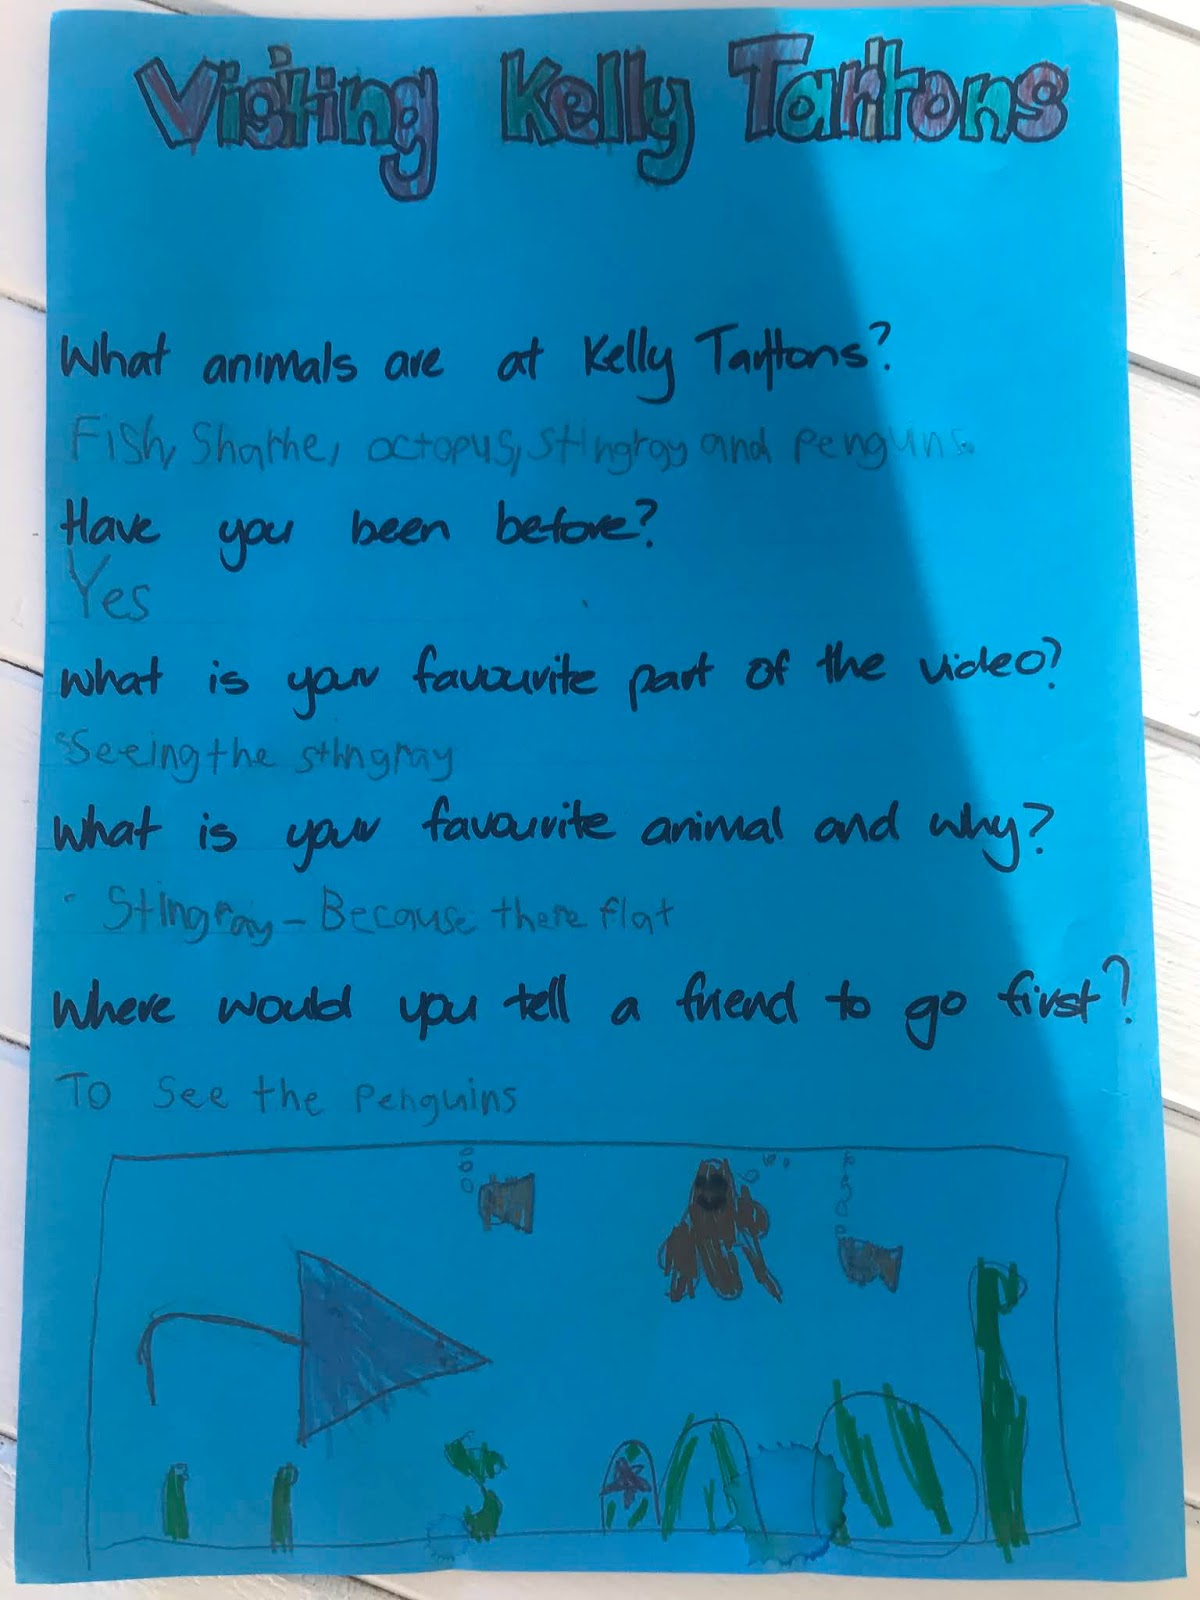 Visiting Kelly Tarltons
What animals are at Kelly Tarltons?
Fish, Sharke, octopus, stingray and penguins.
Have you been before?
Yes
What is your favourite part of the video?
Seeing the stingray
What is your favourite animal and why?
Stingray - Because there flat
Where would you tell a friend to go first?
To See the Penguins